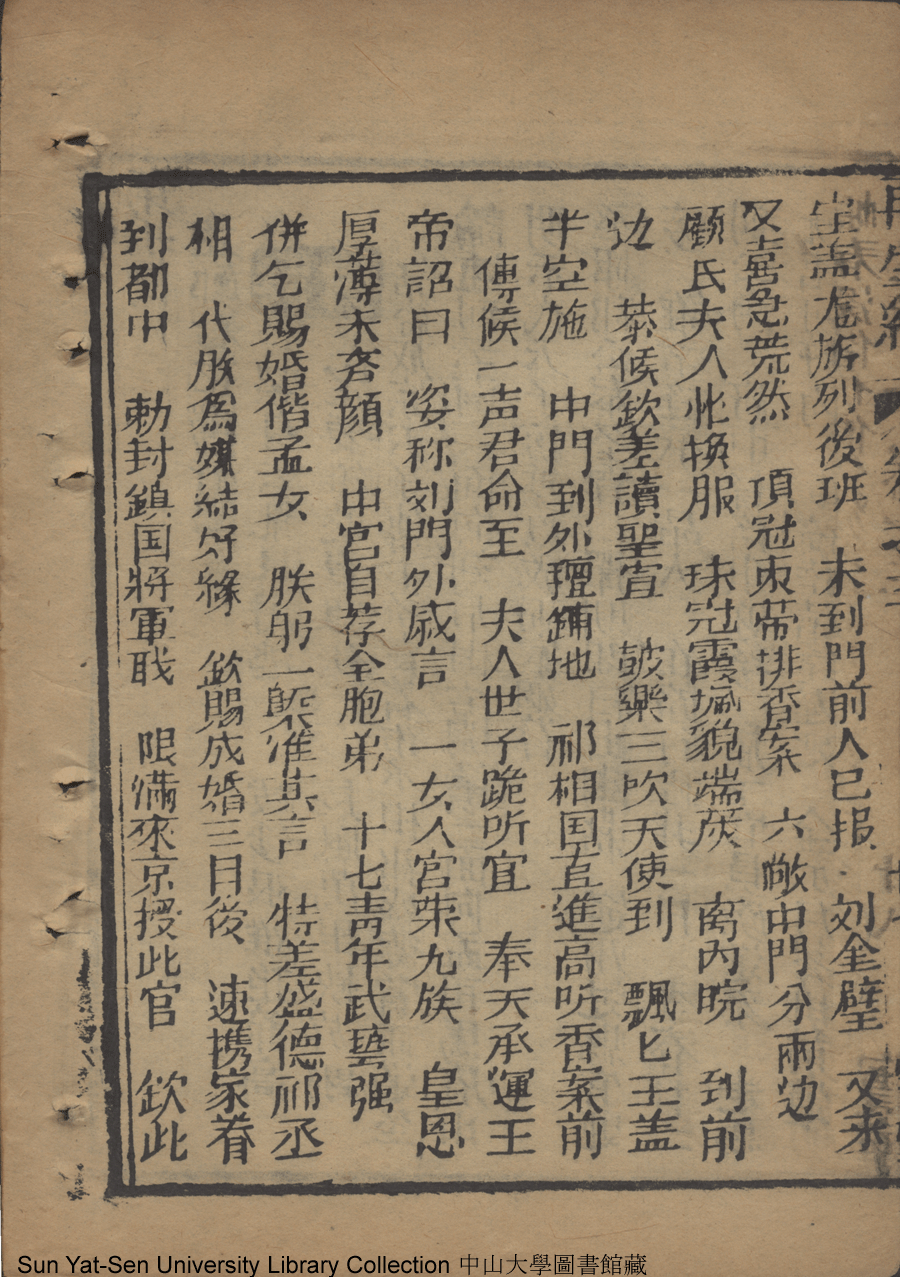 宝盖尨旂列後班　未到門前人已报　刘全璧　又来
又喜急荒然　頂冠束带排香案　六敞中門分兩边
顧氏夫人忙换服　珠冠霞珮貌端庄　离内院　到前
边　恭候欽差讀聖宣　鼓樂三吹天使到　飄匕王盖
半空施　中門到外氊鋪地　祁相国直進高听香案前
傳候一声君命至　夫人世子跪听宜　奉天承運王
帝詔曰　姿称刘門外戚言　一女人宮荣九族　皇恩
厚薄未容顔　中宮自荐全胞弟　十七青年武藝强
併乞賜婚偕孟女　朕躬一槩准其言　特差盛德祁丞
相　代朕為媒結好緣　欽賜成婚三日後　速携家眷
到都中　勅封鎮国將軍职　限满來京授此官　欽此
Sun Yat-Sen University Library Collection 中山大學圖書館藏